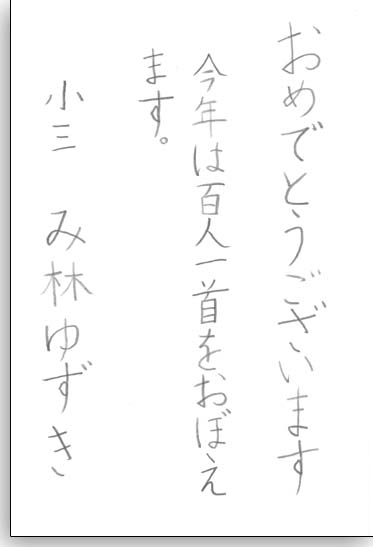 おめでとうございます
今年は百人一首をおぼえ
ます。
小三 み林ゆずき